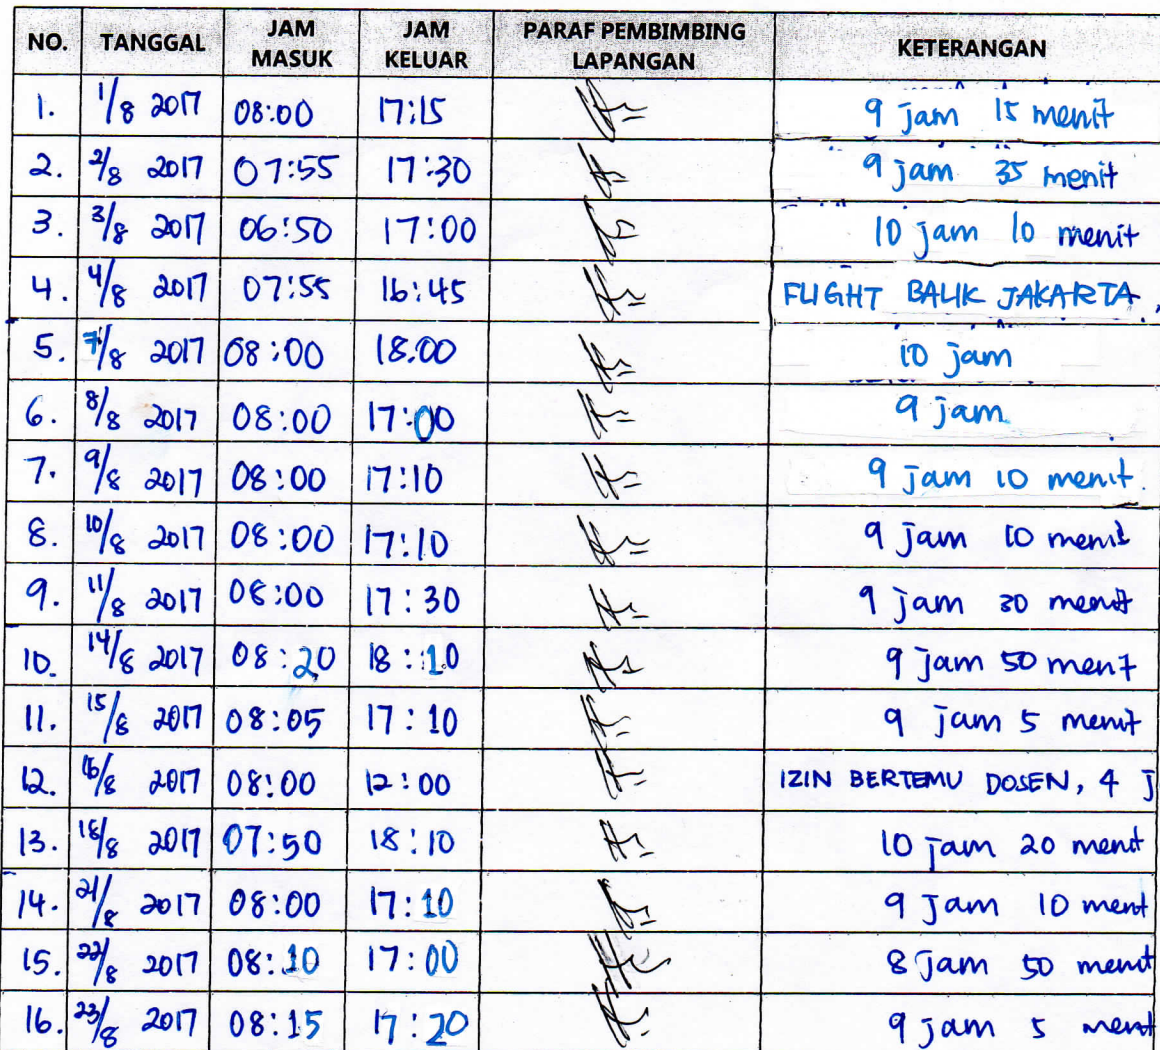 NO. TANGGAL JAM MASUK JAM KELUAR PARAF PEMBIMBING LAPANGAN KETERANGAN
1. 1/8 2017 08:00 17:15 9 jam 15 menit
2. 2/8 2017 07:55 17:30 9 jam 35 menit
3. 3/8 2017 06:50 17:00 10 jam 10 menit
4. 4/8 2017 07:55 16:45 FLIGHT BALIK JAKARTA
5. 7/8 2017 08:00 18.00 10 jam
6. 8/8 2017 08:00 17:00 9 jam
7. 9/8 2017 08:00 17:10 9 jam 10 menit.
8. 10/8 2017 08:00 17:10 9 jam 10 menit
9. 11/8 2017 08:00 17:30 9 jam 30 menit
10. 14/8 2017 08:20 18:10 9 jam 50 menit
11. 15/8 2017 08:05 17:10 9 jam 5 menit
12. 16/8 2017 08:00 12:00 IZIN BERTEMU DOSEN, 4 J
13. 18/8 2017 07:50 18:10 10 jam 20 menit
14. 21/8 2017 08:00 17:10 9 jam 10 menit
15. 22/8 2017 08:10 17:00 8 jam 50 menit
16. 23/8 2017 08:15 17:20 9 jam 5 menit